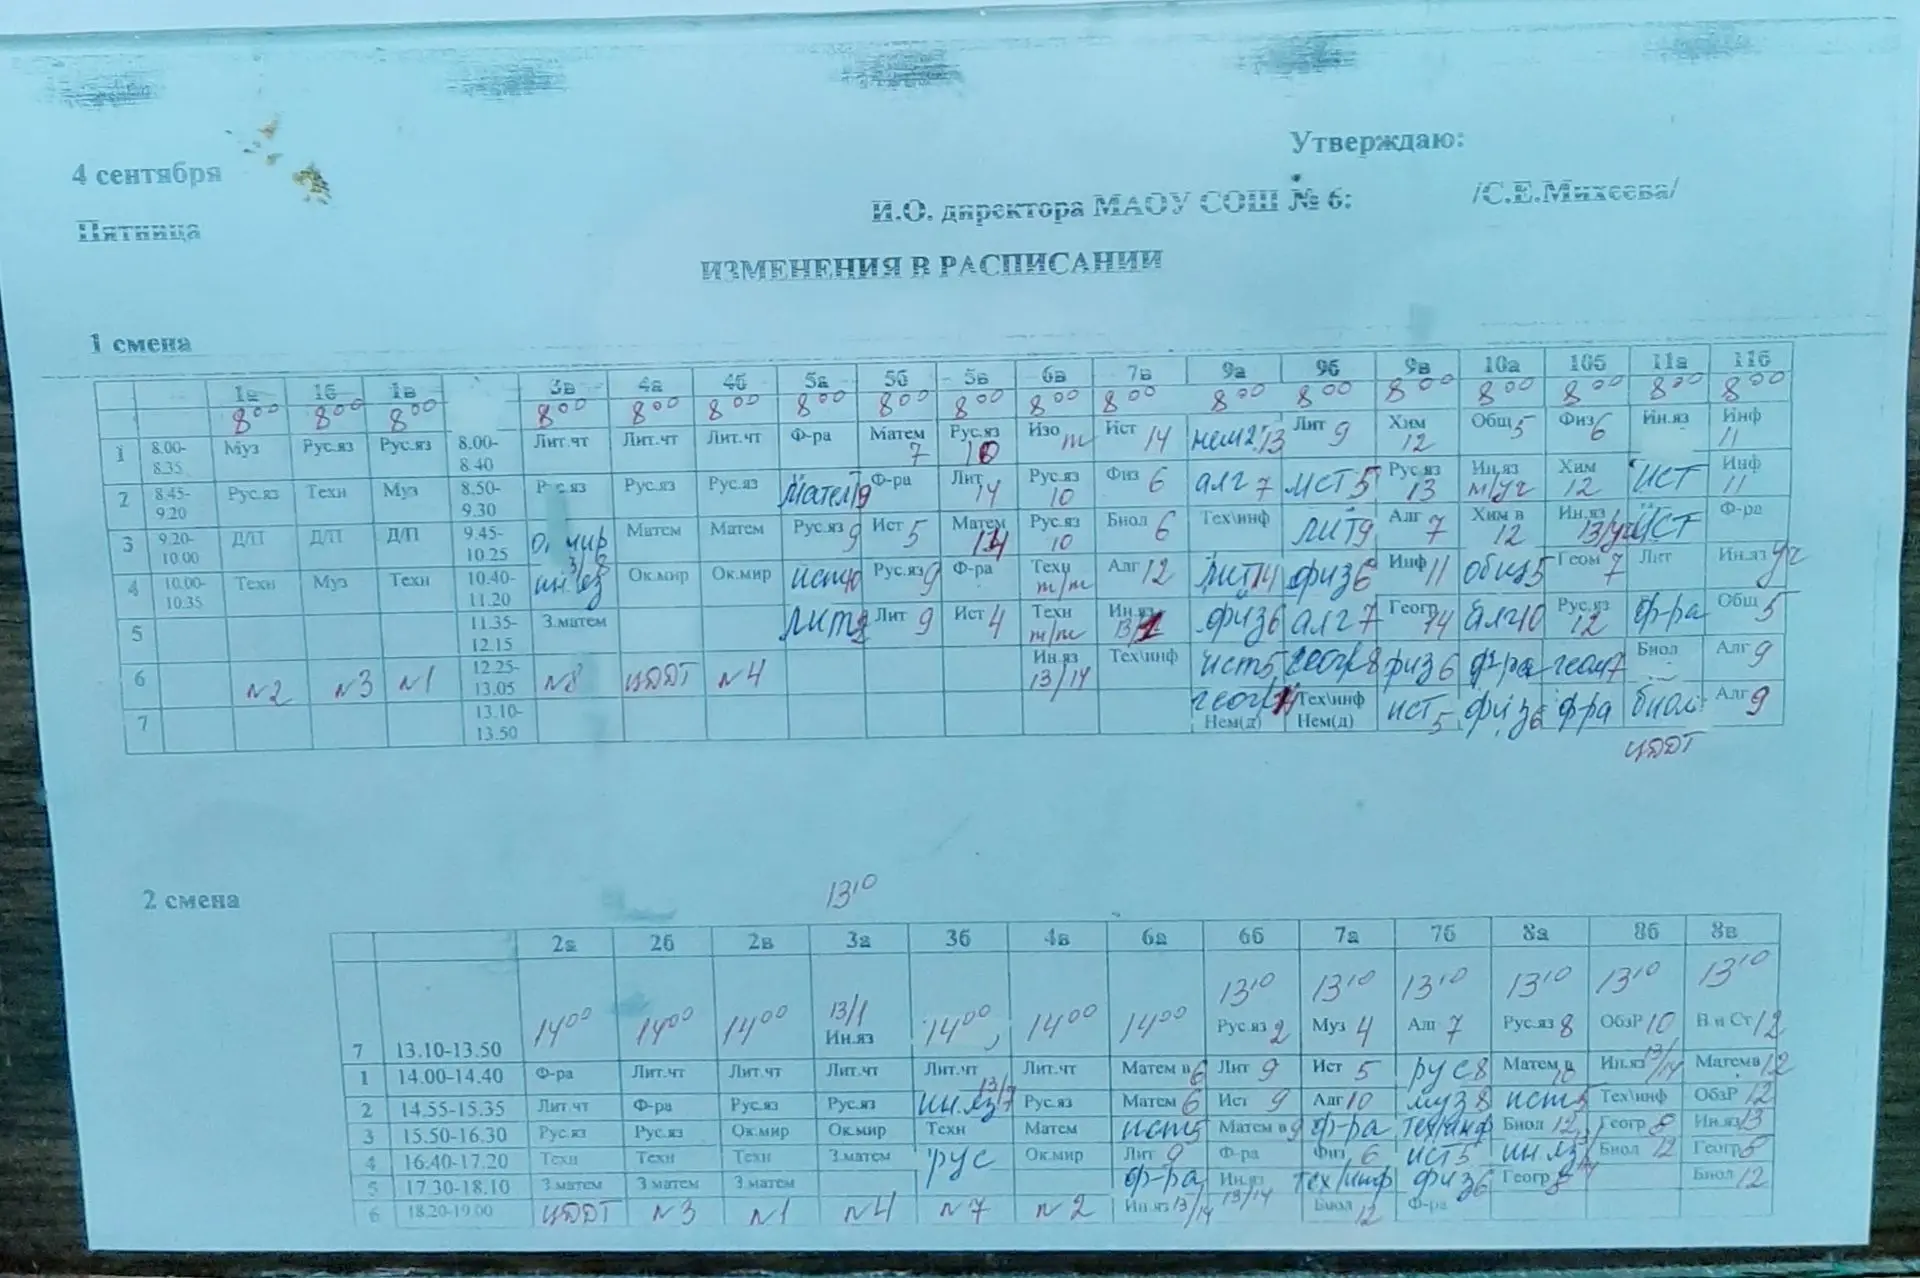 4 сентября
Утверждаю:
Пятница
И.О. директора МАОУ СОШ № 6: /С.Е.Михеева/
ИЗМЕНЕНИЯ В РАСПИСАНИИ
1 смена
1а 1б 1в 3в 4а 4б 5а 5б 5в 6в 7в 9а 9б 9в 10а 10б 11а 11б
8 00 8 00 8 00 8 00 8 00 8 00 8 00 8 00 8 00 8 00 8 00 8 00 8 00 8 00 8 00 8 00 8 00 8 00
1 8.00-8.35 Муз Рус.яз Рус.яз 8.00-8.40 Лит.чт Лит.чт Лит.чт Ф-ра Матем 7 Рус.яз 10 Изо т Ист 14 13 Лит 9 Хим 12 Общ 5 Физ 6 Ин.яз Инф 11
2 8.45-9.20 Рус.яз Техн Муз 8.50-9.30 Рус.яз Рус.яз Рус.яз Матем 9 Ф-ра Лит 14 Рус.яз 10 Физ 6 алг 7 ист 5 Рус.яз 13 Ин.яз т/уч Хим 12 ист Инф 11
3 9.20-10.00 Д/П Д/П Д/П 9.45-10.25 Матем Матем Рус.яз 9 Ист 5 Матем Рус.яз 10 Биол 6 Тех\инф лит 9 Алг 7 Хим в 12 Ин.яз 13/уч ист Ф-ра
4 10.00-10.35 Техн Муз Техн 10.40-11.20 ин.яз 3/8 Ок.мир Ок.мир ист Рус.яз 9 Ф-ра Техн т/т Алг 12 лит 14 физ 6 Инф 11 общ 5 Геом 7 Лит Ин.яз уч
5 11.35-12.15 З.матем лит 9 Лит 9 Ист 4 Техн т/т Ин.яз физ 6 алг 7 Геогр 14 алг 10 Рус.яз 12 ф-ра Общ 5
6 n2 n3 n1 12.25-13.05 n8 ЦДДТ n4 Ин.яз 13/14 Тех\инф ист 5 геогр 8 физ 6 ф-ра геом 7 Биол Алг 9
7 13.10-13.50 геогр Нем(д) Тех\инф Нем(д) ист 5 физ 6 ф-ра биол Алг 9
ЦДДТ
2 смена 13 10
2а 2б 2в 3а 3б 4в 6а 6б 7а 7б 8а 8б 8в
7 13.10-13.50 14 00 14 00 14 00 13/1 Ин.яз 14 00 14 00 14 00 13 10 Рус.яз 2 13 10 Муз 4 13 10 Алг 7 13 10 Рус.яз 8 13 10 ОбзР 10 13 10 В и Ст 12
1 14.00-14.40 Ф-ра Лит.чт Лит.чт Лит.чт Лит.чт Лит.чт Матем в 6 Лит 9 Ист 5 рус 8 Матем в 10 Ин.яз 13/14 Матем в 12
2 14.55-15.35 Лит.чт Ф-ра Рус.яз Рус.яз ин.яз 13/7 Рус.яз Матем 6 Ист 9 Алг 10 муз 8 ист 5 Тех\инф ОбзР 12
3 15.50-16.30 Рус.яз Рус.яз Ок.мир Ок.мир Техн Матем ист 5 Матем в 9 ф-ра тех/инф Биол 12 Геогр 8 Ин.яз 13
4 16.40-17.20 Техн Техн Техн З.матем рус Ок.мир Лит 9 Ф-ра Физ 6 ист 5 ин.яз Биол 12 Геогр 5
5 17.30-18.10 З.матем З.матем З.матем ф-ра Ин.яз 13/14 тех/инф физ 6 Геогр 8 Биол 12
6 18.20-19.00 ЦДДТ n3 n1 n4 n7 n2 Ин.яз 13/14 Биол 12 Ф-ра